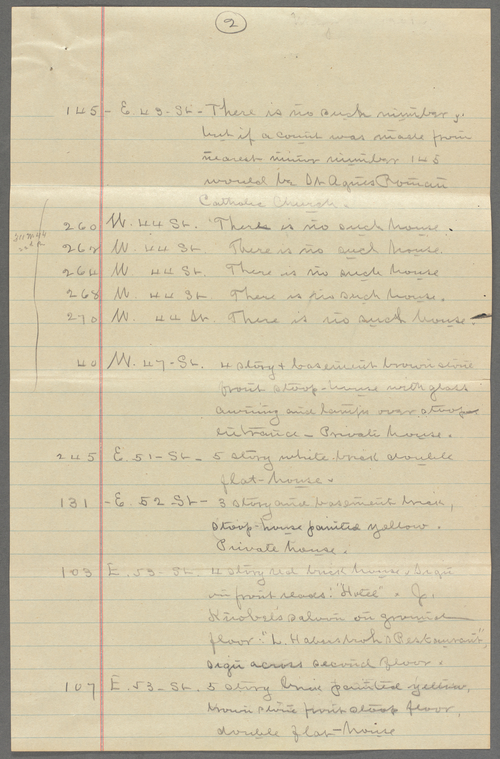 2
145 - E 43 - St - There is no such number,
but if a count was made from
nearest number 145
would be St Agnes Roman
Catholic Church.
260 W. 44 St. There is no such house.
262 W. 44 St. There is no such house.
264 W 44 St There is no such house
268 W 44 St There is no such house.
270 W. 44 St. There is no such house.
40 W. 47 - St. 4 story & basement brown stone
front stoop - house with glass
awning and lamps over stoop
entrance - Private house.
245 E. 51 - St - 5 story white brick double
flat - house.
131 - E. 52 St - 3 story and basement brick,
stoop - house painted yellow.
Private house.
103 E. 53 - St. 4 story red brick house. Sign
on front reads: "Hotel". J.
saloon on ground
floor: "L. Restaurant",
sign across second floor.
107 E. 53 - St. 5 story brick painted yellow,
brown stone front stoop floor,
double flat - house